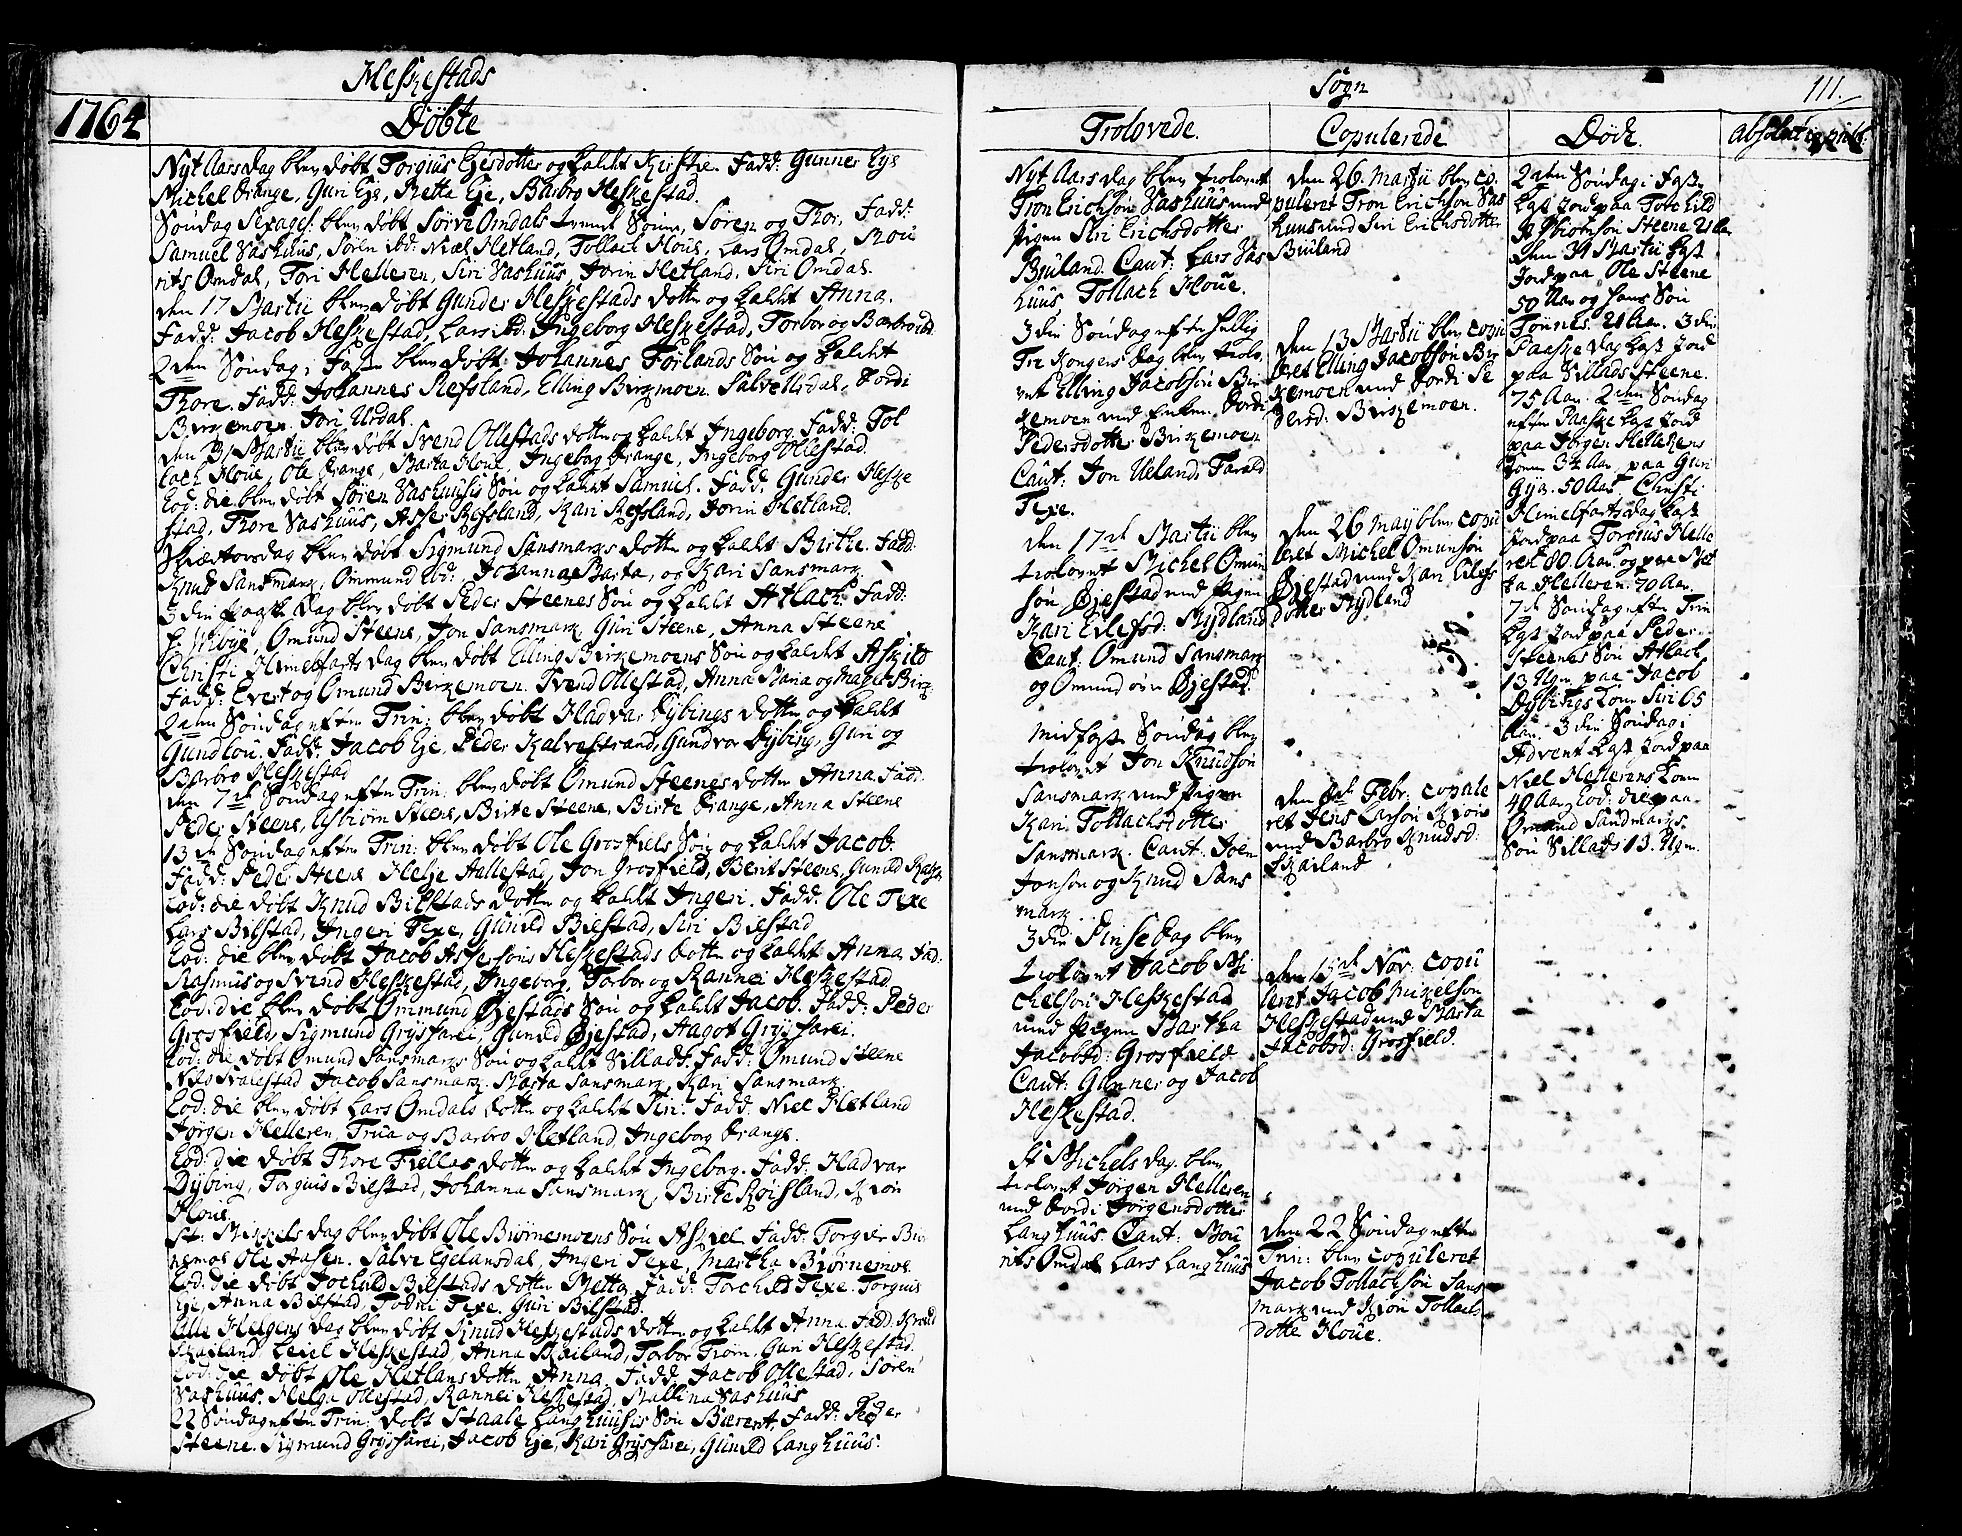 Heskestads
1764
Döbte
Nyt Aars Dag blev døbt Torgius Ejesdotter og kaldt Kirstie. Fadd: Gunner Eye
Michel Prange, Guri Eje, Mette Eje, Barbro Heskestad.
Søndag Sexages: blev døbt Sörve Omdals tvende Sönner, Sören og Thor, Fadd:
Samuel Vashuus, Sören ibd: Niel Hetland, Tollach Houe, Lars Omdal, Mou
rits Omdal, Tori Helleren, Siri Vashuus, Jorin Hetland, Siri Omdal.
den 17 Martii blev døbt Gunder Heskestads dotter og kaldt Anna.
Fadd: Jacob Heskestad, Lars ibd: Ingeborg Heskestad, Torbor og Barbro ibd:
2den Søndag i Faste blev døbt: Johannes Förlands Søn og kaldt
Thore. Fadd: Johannes Refsland, Elling Birkemoen, Salve Ursdal, Jordi
Birkemoen, Tori Ursdal.
den 31 Martii blev døbt Svend Ollestads dotter og kaldt Ingeborg, Fadd: Tol
lach Houe, Ole Prange, Marta Houe, Ingeborg Prange, Ingeborg Ollestad.
Eod: die blev døbt Sören Vashuusis Søn og kaldt Samuel. Fadd: Gunder Heske
stad, Thore Vashuus, Asser Refsland, Kari Refsland, Jorin Hetland.
Skiærtorsdag blev døbt Sigmund Sansmarks dotter og kaldt Birthe. Fadd:
Knud Sansmark, Ommund ibd: Johanna, Marta, og Kari Sansmark
3die Paaske Dag blev døbt Peder Steenes Søn og kaldt Atlach: Fadd:
Hr Wibye, Omund Steene, Jon Sansmark, Guri Steene, Anna Steene
Christi Himelfarts dag blev døbt Elling Birkemoens Søn og kaldt Askild
Fadd: Evert og Omund Berkemoen. Svend Ollestad, Anna Maria og Magel Birk:
2den Søndag efter Trin: blev døbt Hadvar Dybings dotter og kaldt
Gundlou. Fadd: Jacob Eje, Peder Kalvestrand, Gundvor Dybing, Guri og
Barbro Heskestad
den 7de Søndag efter Trin: blev døbt Omund Steenes dotter Anna, Fadd:
Peder Steene, Asbiørn Steene, Birte Steene, Birte Prange, Anna Steene
13de Søndag efter Trin: blev døbt Ole Grosfiels Søn og kaldt Jacob:
Fadd: Peder Steene Helje Hallestad, Jon Grosfield, Berit Steene, Guneld
Eod: die døbt Knud Bilstads dotter og kaldt Ingeri. Fadd: Ole Texe
Lars Bilstad, Ingeri Texe, Gunild Bilestad, Siri Bilestad
Eod: die blev døbt Jacob Assersøns Heskestads dotter og kaldt Anna, Fad:
Rasmus og Svend Heskestad, Ingeborg, Torbor og Rannei Heskestad.
Eod: die blev døbt Ommund Øjestads Søn og kaldt Jacob. Fadd: Peder
Grosfield, Sigmund Grysharei, Gunild Øjestad, Aagot Grysharei.
Eod: die døbt Omund Sansmarks Søn og kaldt Sillads: Fadd: Omund Steene
Nils Svalestad Jacob Sansmark. Marta Sansmark, Kari Sansmark.
Eod: die blev døbt Lars Omdals dotter og kaldt Siri: Fadd: Niel Hetland
Jørgen Helleren, Trua og Barbro Hetland, Ingeborg Prange.
Eod: die døbt Thore Fielles dotter og kaldt Ingeborg. Fadd: Hadvar
Dybing, Torguis Bilestad, Johanna Sansmark, Birte Røisland, Kiön
Houe.
St: Mikkels dag blev døbt Ole Biørnemoens Søn Askiel. Fadd: Torger Biør
nemoe Ole Aasen. Salve Egelandsdal, Ingeri Texe, Martha Biørnemoe
Eod: die døbt Torkild Bilestads dotter Metta, Fadd: Torchild Texe Torguis
Eje, Anna Bilstad, Todne Texe. Guri Bilstad.
Alle Helgens dag blev døbt Knud Heskestads dotter og kaldt Anna. Fadd: Knud
Skailand Leiel Heskestad, Anna Skailand, Torbor Troin. Guri Heskestad.
Eod: die døbt Ole Hetlans dotter Anna, Fadd: Jacob Ollestad, Sören
Vashuus. Helge Ollestad, Rannei Heskestad, Mallina Vashuus
22 Søndag efter Trin: døbt Staale Langhuusis Søn Bærent, Fadd: Peder
Steene. Sigmund Grysharei, Jacob Eje, Kari Grysharei, Gunild Langhuus:
Sogn
111.
Trolovede.
Nyt Aars dag blev trolovet
Tron Erichsøn Vashuus med
Pigen Siri Erichsdotter
Bjuland. Caut: Lars Vas
huus Tollach Houe.
3die Søndag efter hellig
Tre Kongers dag blev trolo
vet Elling Jacobsøn Bir
kemoen med Enken Jordi
Pedersdotter Birkemoen
Caut: Jon Ueland, Tarald
Texe.
den 17de Martii blev
trolovet Michel Omun
søn Øjestad med Pigen
Kari Eilefsd: Skydland
Caut: Omund Sansmark
og Omund øvre Øjestad.
Midfaste Søndag blev
trolovet Jon Knudsøn
Sansmark med Pigen
Kari Tollachsdotter
Sansmark. Caut: Joen
Jonsøn og Knud Sans
mark.
3die Pinse dag blev
trolovet Jacob Mi
chelsøn Heskestad
med Pigen Martha
Jacobsd: Grosfield
Caut: Gunner og Jacob
Heskestad.
St Michels dag. blev
trolovet Jørgen Helleren
med Jordi Jørgensdotter
Langhuus. Caut: Mou
rits Omdal Lars Langhuus
Copulerede
den 26. Martii blev co,
puleret Tron Erichson Vas
huus med Siri Erichsdotter
Biuland
den 13 Martii blev copu
leret Elling Jacobsøn Bir
kemoen med Jordi Pe
dersd: Birkemoen.
den 26 Maji blev copu
leret Michel Omunsøn
Øjestad med Kari Eilefs
dotter Skydland
den Febr: copule
ret Jens Larsøn Kiøn
med Barbro Knudsd:
Skailand
den 1de Nov: copu
leret Jacob Mikelsøn
Heskestad med Marta
Jacobsd: Grosfield.
den 22 Søndag efter
Trin: blev copuleret
Jacob Tollachsøn Sans
mark med Kiön Tollachs
dotter Houe.
Döde.
2den Søndag i Faste
kast Jord paa Torchild
Thiotsøn Steene 21 Aar
den 31 Martii kast
Jord paa Ole Steene
50 Aar og hans Søn
Tønnes. 21 Aar. 3die
Paaske dag kast Jord
paa Sillads Steene.
75 Aar. 2den Søndag
efter Paaske kast Jord
paa Jörgen Hellerens
Kone 34 Aar, paa Guri
Gya. 50 Aar Christi
Himelfarts dag kast
Jord paa Torgius Helle
ren 80. Aar. og paa Met
ta Helleren. 70 Aar.
7de Søndag efter Trin
kast Jord paa Peder
Steenes Søn Atlach
13 Ugr. paa Jacob
Dybings Kone Siri 65
Aar. 3die Søndag i
Advent kast Jord paa
Niel Hellerens Kone
40 Aar, Eod: die paa
Omund Sandmarks
Søn Sillads 13. Ugr.
Absolert og